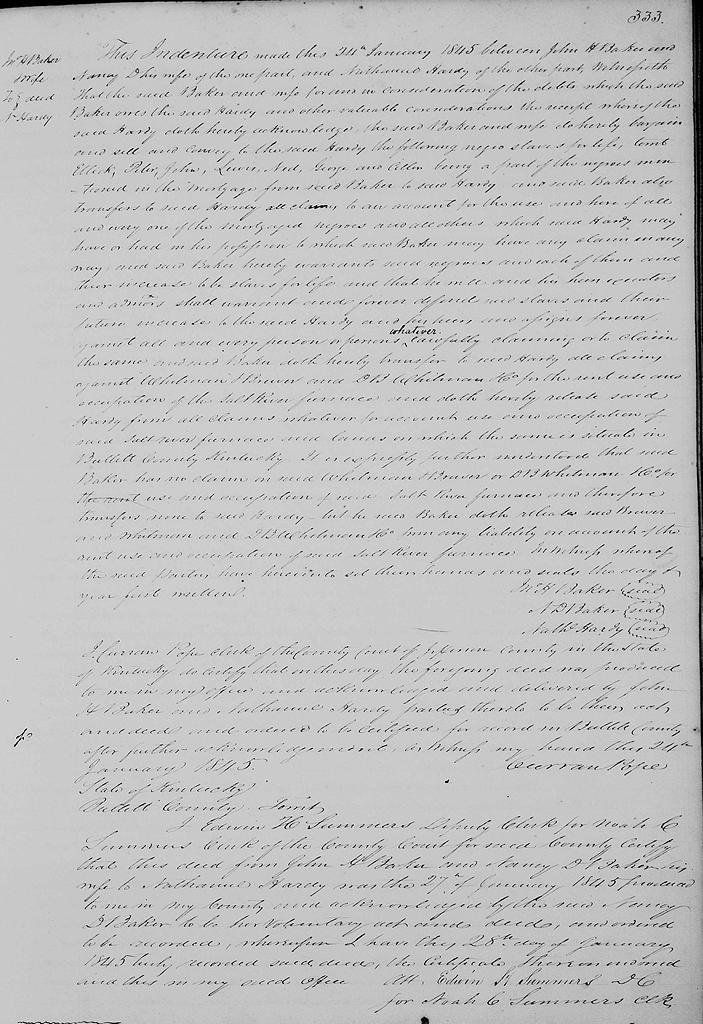 333.
Jno H Baker
Wife
To } deed
N Hardy
This Indenture made this 24th January 1845 between John H Baker and
Nancy D his wife of the one part, and Nathaniel Hardy of the other part, Witnesseth
That the said Baker and wife for and in consideration of the debts which the said
Baker owes the said Hardy and other valuable considerations the receipt whereof the
said Hardy doth hereby acknowledge, the said Baker and wife do hereby bargain
and sell and convey to the said Hardy the following negro slaves for life,
Ellick, Peter, John, Lewis, Ned, George and being a part of the negroes men
-tioned in the Mortgage from said Baker to said Hardy and said Baker also
transfers to said Hardy all claim, to an account for the use and hire of all
and every one of the mortgaged negroes and all others which said Hardy may
have or had in his possession to which said Baker may have any claim in any
way, and said Baker hereby warrants said negroes and each of them and
their increase to be slaves for life and that he will and his heirs executors
and admors shall warrant and forever defend said slaves and their
future increase to the said Hardy and his heirs and assigns forever
against all and every person or persons whatever lawfully claiming or to claim
the same and said Baker doth hereby transfer to said Hardy all claims
against Whitman & Brewer and D B Whitman & Co for the rent use and
occupation of the Salt River furnace and doth hereby release said
Hardy from all claims whatever for account use and occupation of
said Salt river furnace and lands on which the same is situate in
Bullitt County Kentucky. It is expressly further understood that said
Baker has no claim on said Whitman & Brewer or D B Whitman & Co for
the rent use and occupation of said Salt River furnace and therefore
transfers none to said Hardy but he said Baker doth release said Brewer
and Whitman and D B Whitman & Co from any liability on account of the
rent use and occupation of said Salt River furnace In Witness whereof
the said parties have hereunto set their hands and seals the day &
year first written.
Jno H Baker (seal)
N D Baker (seal)
Nathl Hardy (seal)
I Curran Pope clerk of the County Court of Jefferson County in the State
of Kentucky do certify that on this day the foregoing deed was produced
to me in my office and acknowledged and delivered by John
H Baker and Nathaniel Hardy parties thereto to be their act
and deed and ordered to be certified for record in Bullitt County
after further acknowledgement, as Witness my hand this 24th
January 1845
Curran Pope
State of Kentucky
Bullitt County Towit
I Edwin H Summers Deputy Clerk for Noah C
Summers Clerk of the County Court for said County Certify
that this deed from John H Baker and Nancy D Baker his
wife to Nathaniel Hardy was the 27th of January 1845 produced
to me in my County and acknowledged by the said Nancy
D Baker to be her Voluntary act and deed, and ordered
to be recorded, whereupon I have this 28th day of January
1845 truly recorded said deed, the Certificate thereon endorsed
and this in my said office Att. Edwin H Summers D C
for Noah C Summers Clk